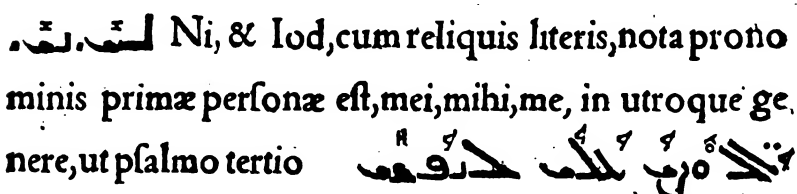 Ni, & Iod, cum reliquis literis, nota prono
minis primæ perſonæ eſt, mei, mihi, me, in utroque ge,
nere, ut pſalmo tertio